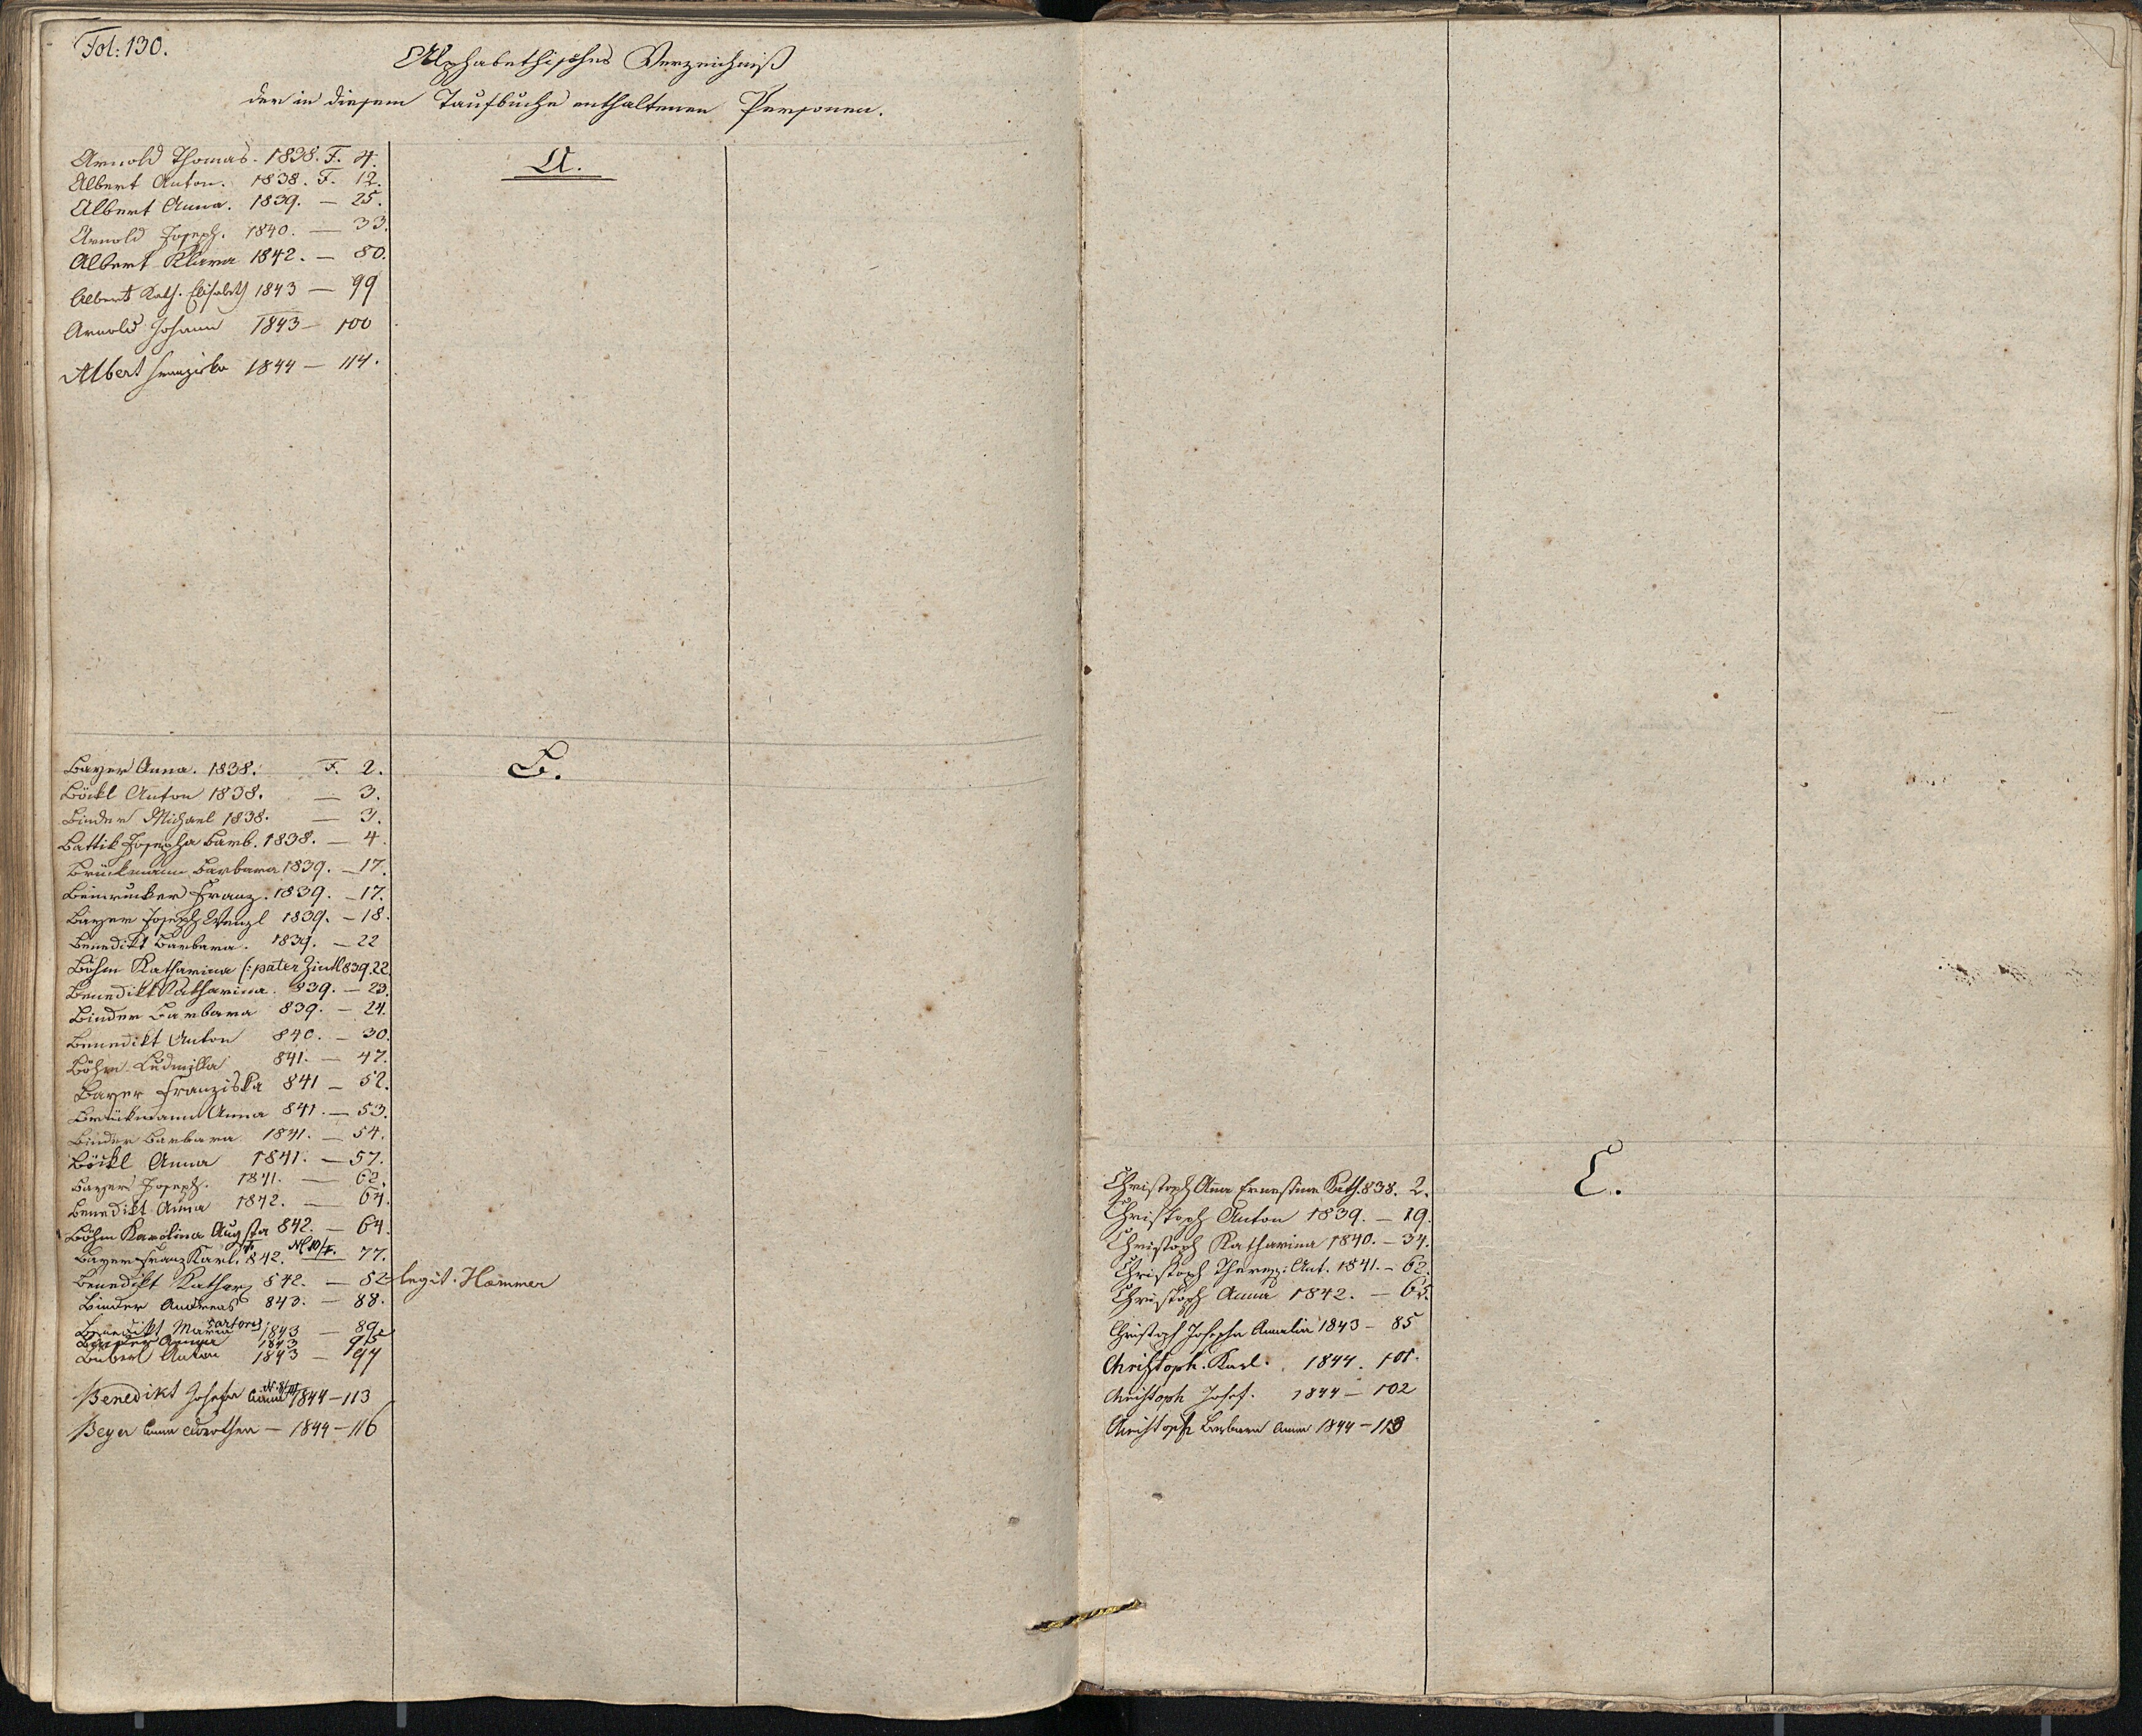 Fol: 130.
Alphabethisches Verzeichniß
der in diesem Taufbuche enthaltenen Personen.
A.
Arnold Thomas. 1838. F. 4.
Albert Anton. 1838. F. 12.
Albert Anna. 1839. — 25.
Arnold Joseph. 1840. — 33.
Albert Klara 1842. — 80.
Albert Kath. Elisabeth 1843 — 99
Arnold Johann 1843 — 100
Albert Franziska 1844 — 114.
B.
Bayer Anna. 1838. F. 2.
Böckl Anton 1838. — 3.
Binder Michael 1838. — 3.
Battik Josepha Barb. 1838. — 4.
Brückmann Barbara 1839. — 17.
Franz. 1839. — 17.
Bayer Joseph Wenzl 1839. — 18.
Benedikt Barbara. 1839. — 22
Böhm Katharina (: pater Zintl 839. 22.
Benedikt Katharina. 839. — 23.
Binder Barbara 839. — 24.
Benedikt Anton 840. — 30.
Böhm Ludmilla 841. — 47.
Bayer Franziska 841 — 52.
Brückmann Anna 841. — 53.
Binder Barbara 1841. — 54.
Böckl Anna 1841. — 57.
Bayer Joseph. 1841. — 62.
Benedikt Anna 1842. — 64.
Böhm Karolina Augusta 842. — 64.
Bayer Franz Karl. 842. — 77.
Benedikt Kathar. 842. — 82 legit. Hammer
Binder Andreas 843. — 88.
Benedikt Maria 1843 — 89.
Anna 1843 95
Anton 1843 — 97
Benedikt Josefa Anna 1844 — 113
Beyer Anna Dorothea — 1844 — 116
C.
Christoph Anna Ernestine Kath. 838. 2.
Christoph Anton 1839. — 19.
Christoph Katharina 1840. — 34.
Christoph Theres: Ant. 1841. — 62.
Christoph Anna 1842. — 65.
Christoph Josepha Amalia 1843 — 85
Christoph. Karl. 1844. 101.
Christoph Josef. 1844 — 102
Christoph Barbara Anna 1844 — 113